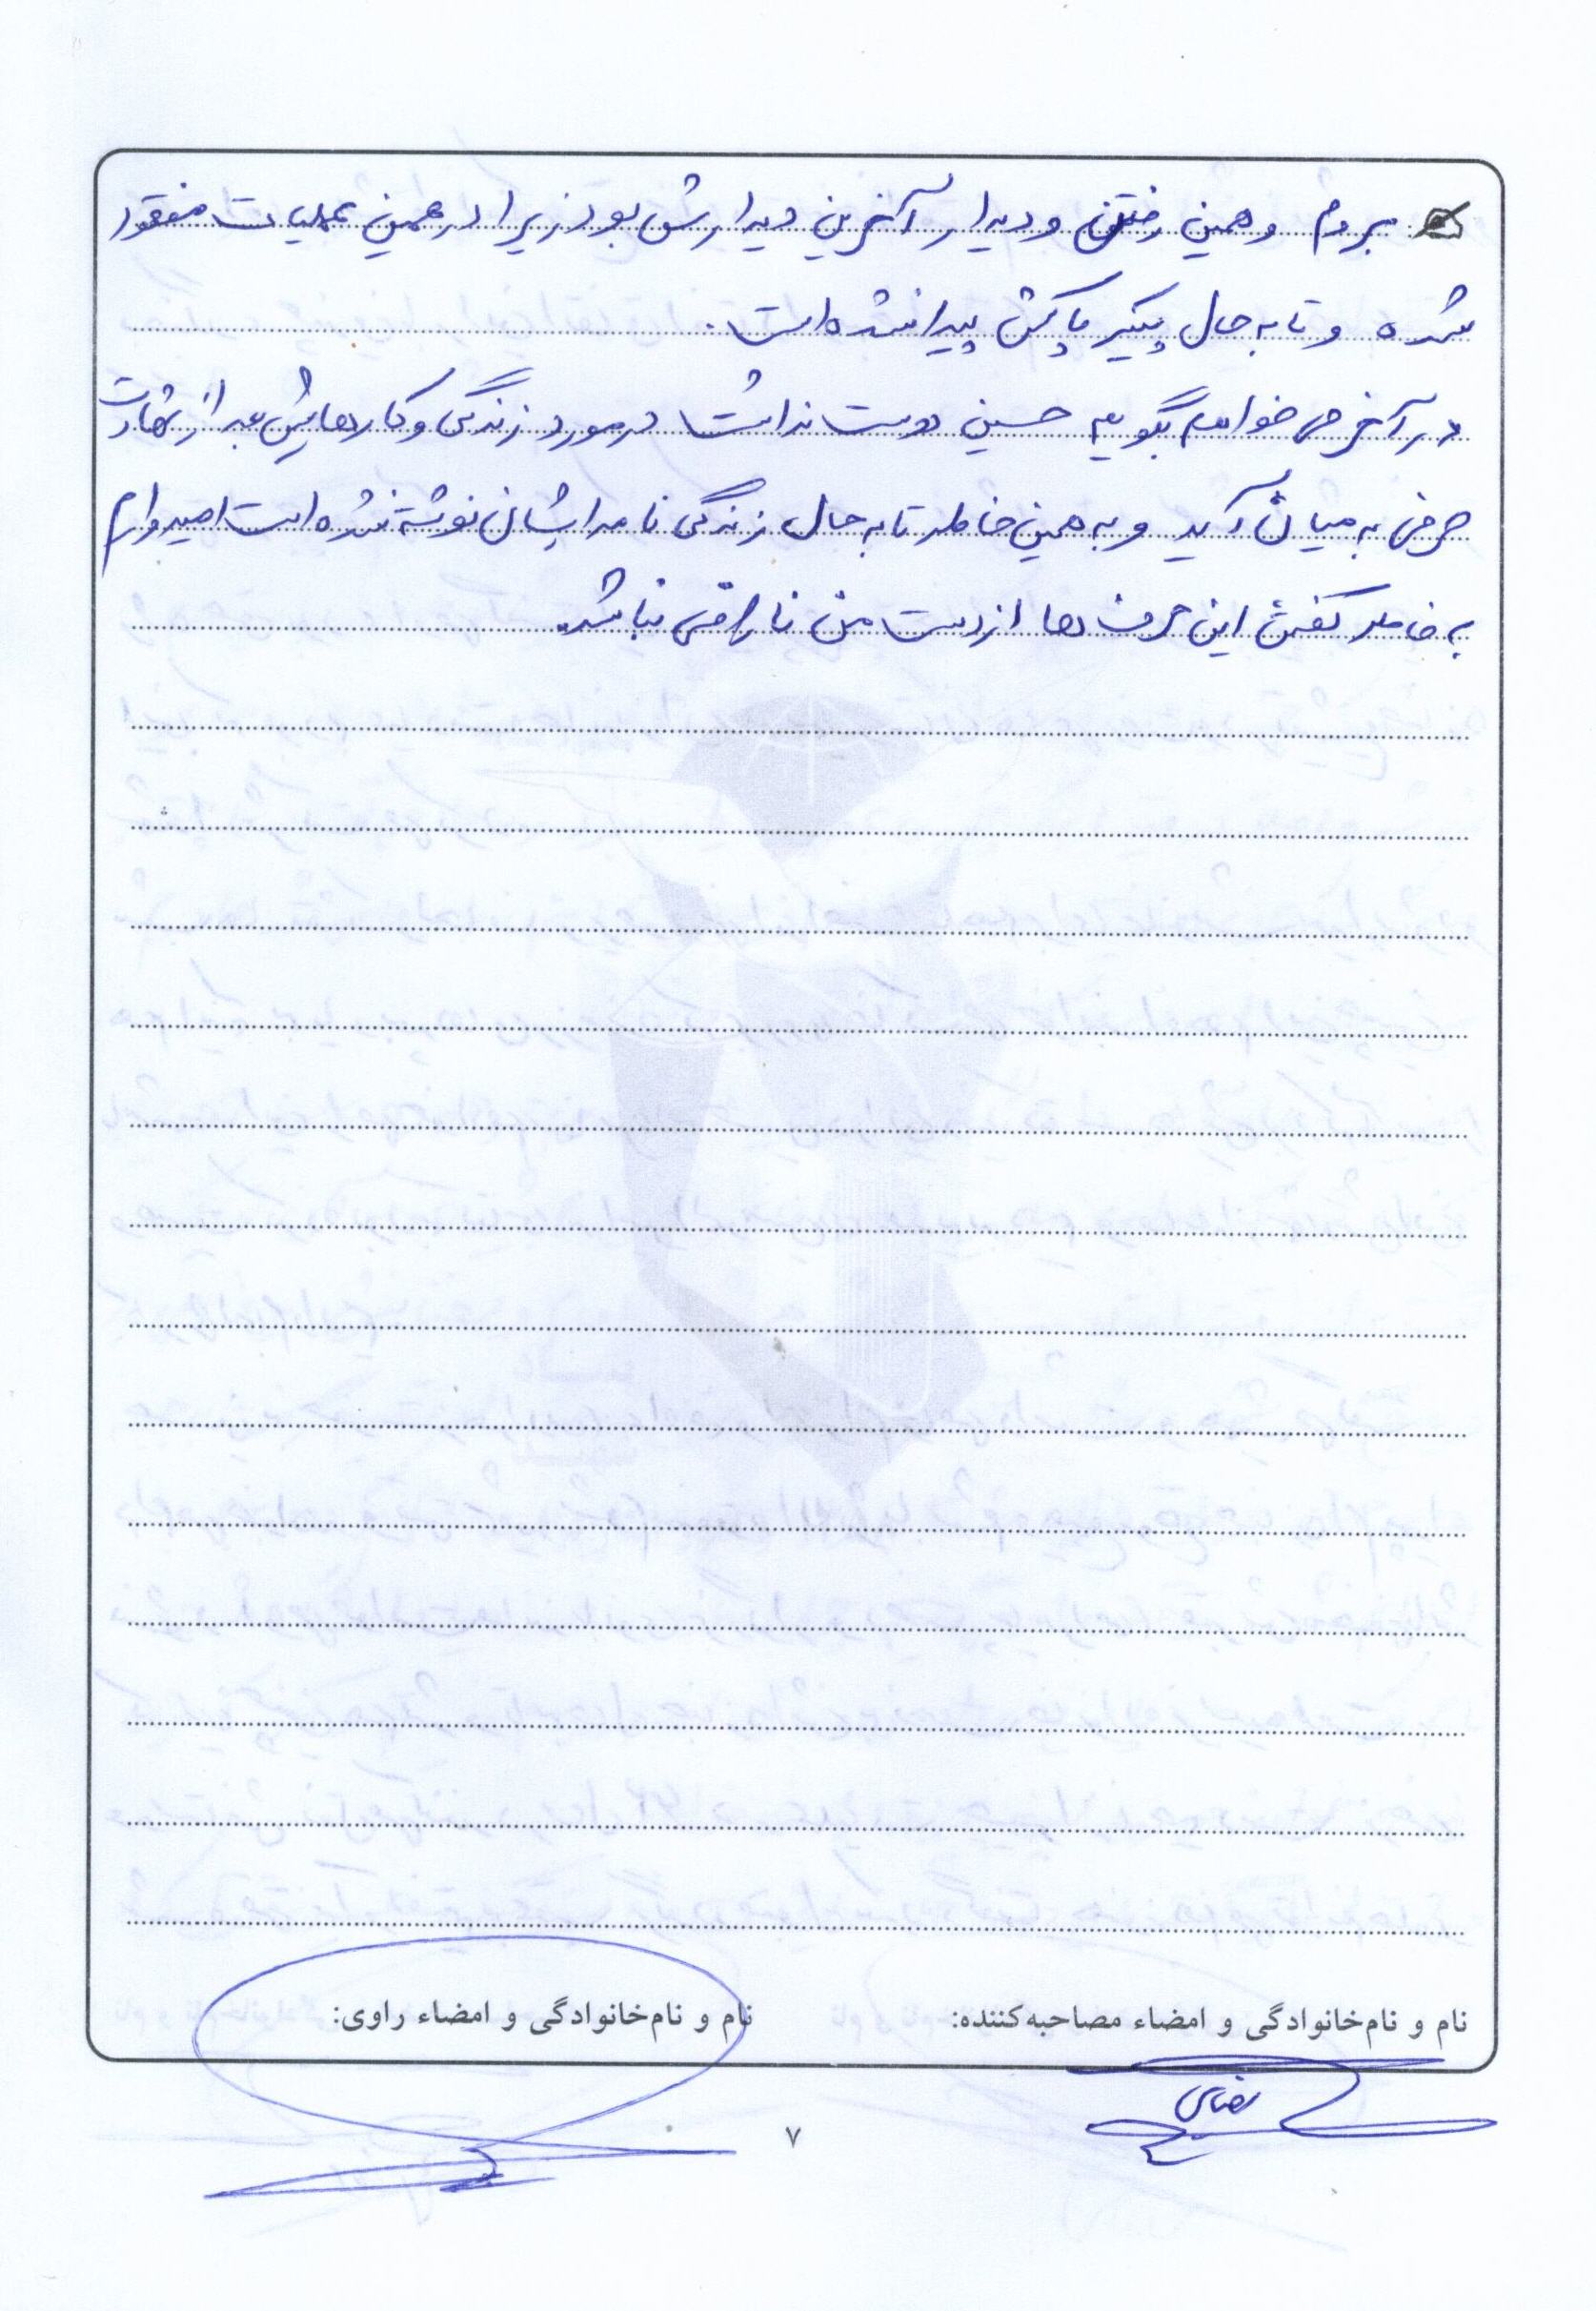 بروم و همین رفتن و دیدار آخرین دیدارش بود زیرا در همین عملیات مفقود
شده و تا به حال پیکر پاکش پیدا نشده است.
در آخر می خواهم بگویم حسین دوست نداشت در مورد زندگی و کارهایش بعد از شهادت
حرفی به میان آید و به همین خاطر تا به حال زندگی نامه ایشان نوشته نشده است امیدوارم
به خاطر گفتن این حرف ها از دست من ناراضی نباشد.
نام و نام‌خانوادگی و امضاء مصاحبه‌کننده:
نام و نام‌خانوادگی و امضاء راوی:
۷